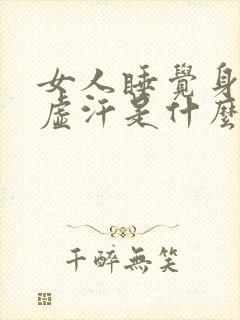 女人睡覺身
虛汗是什麼
千醉無笑